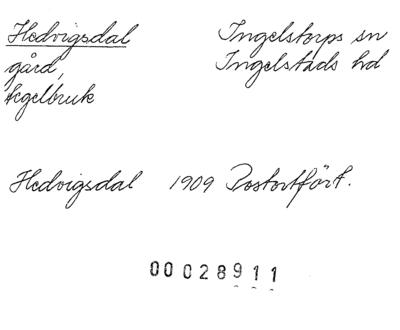 Hedvigsdal Ingelstorps sn
gård, Ingelstads hd
tegelbruk
Hedvigsdal 1909 Postortfört.
00028911